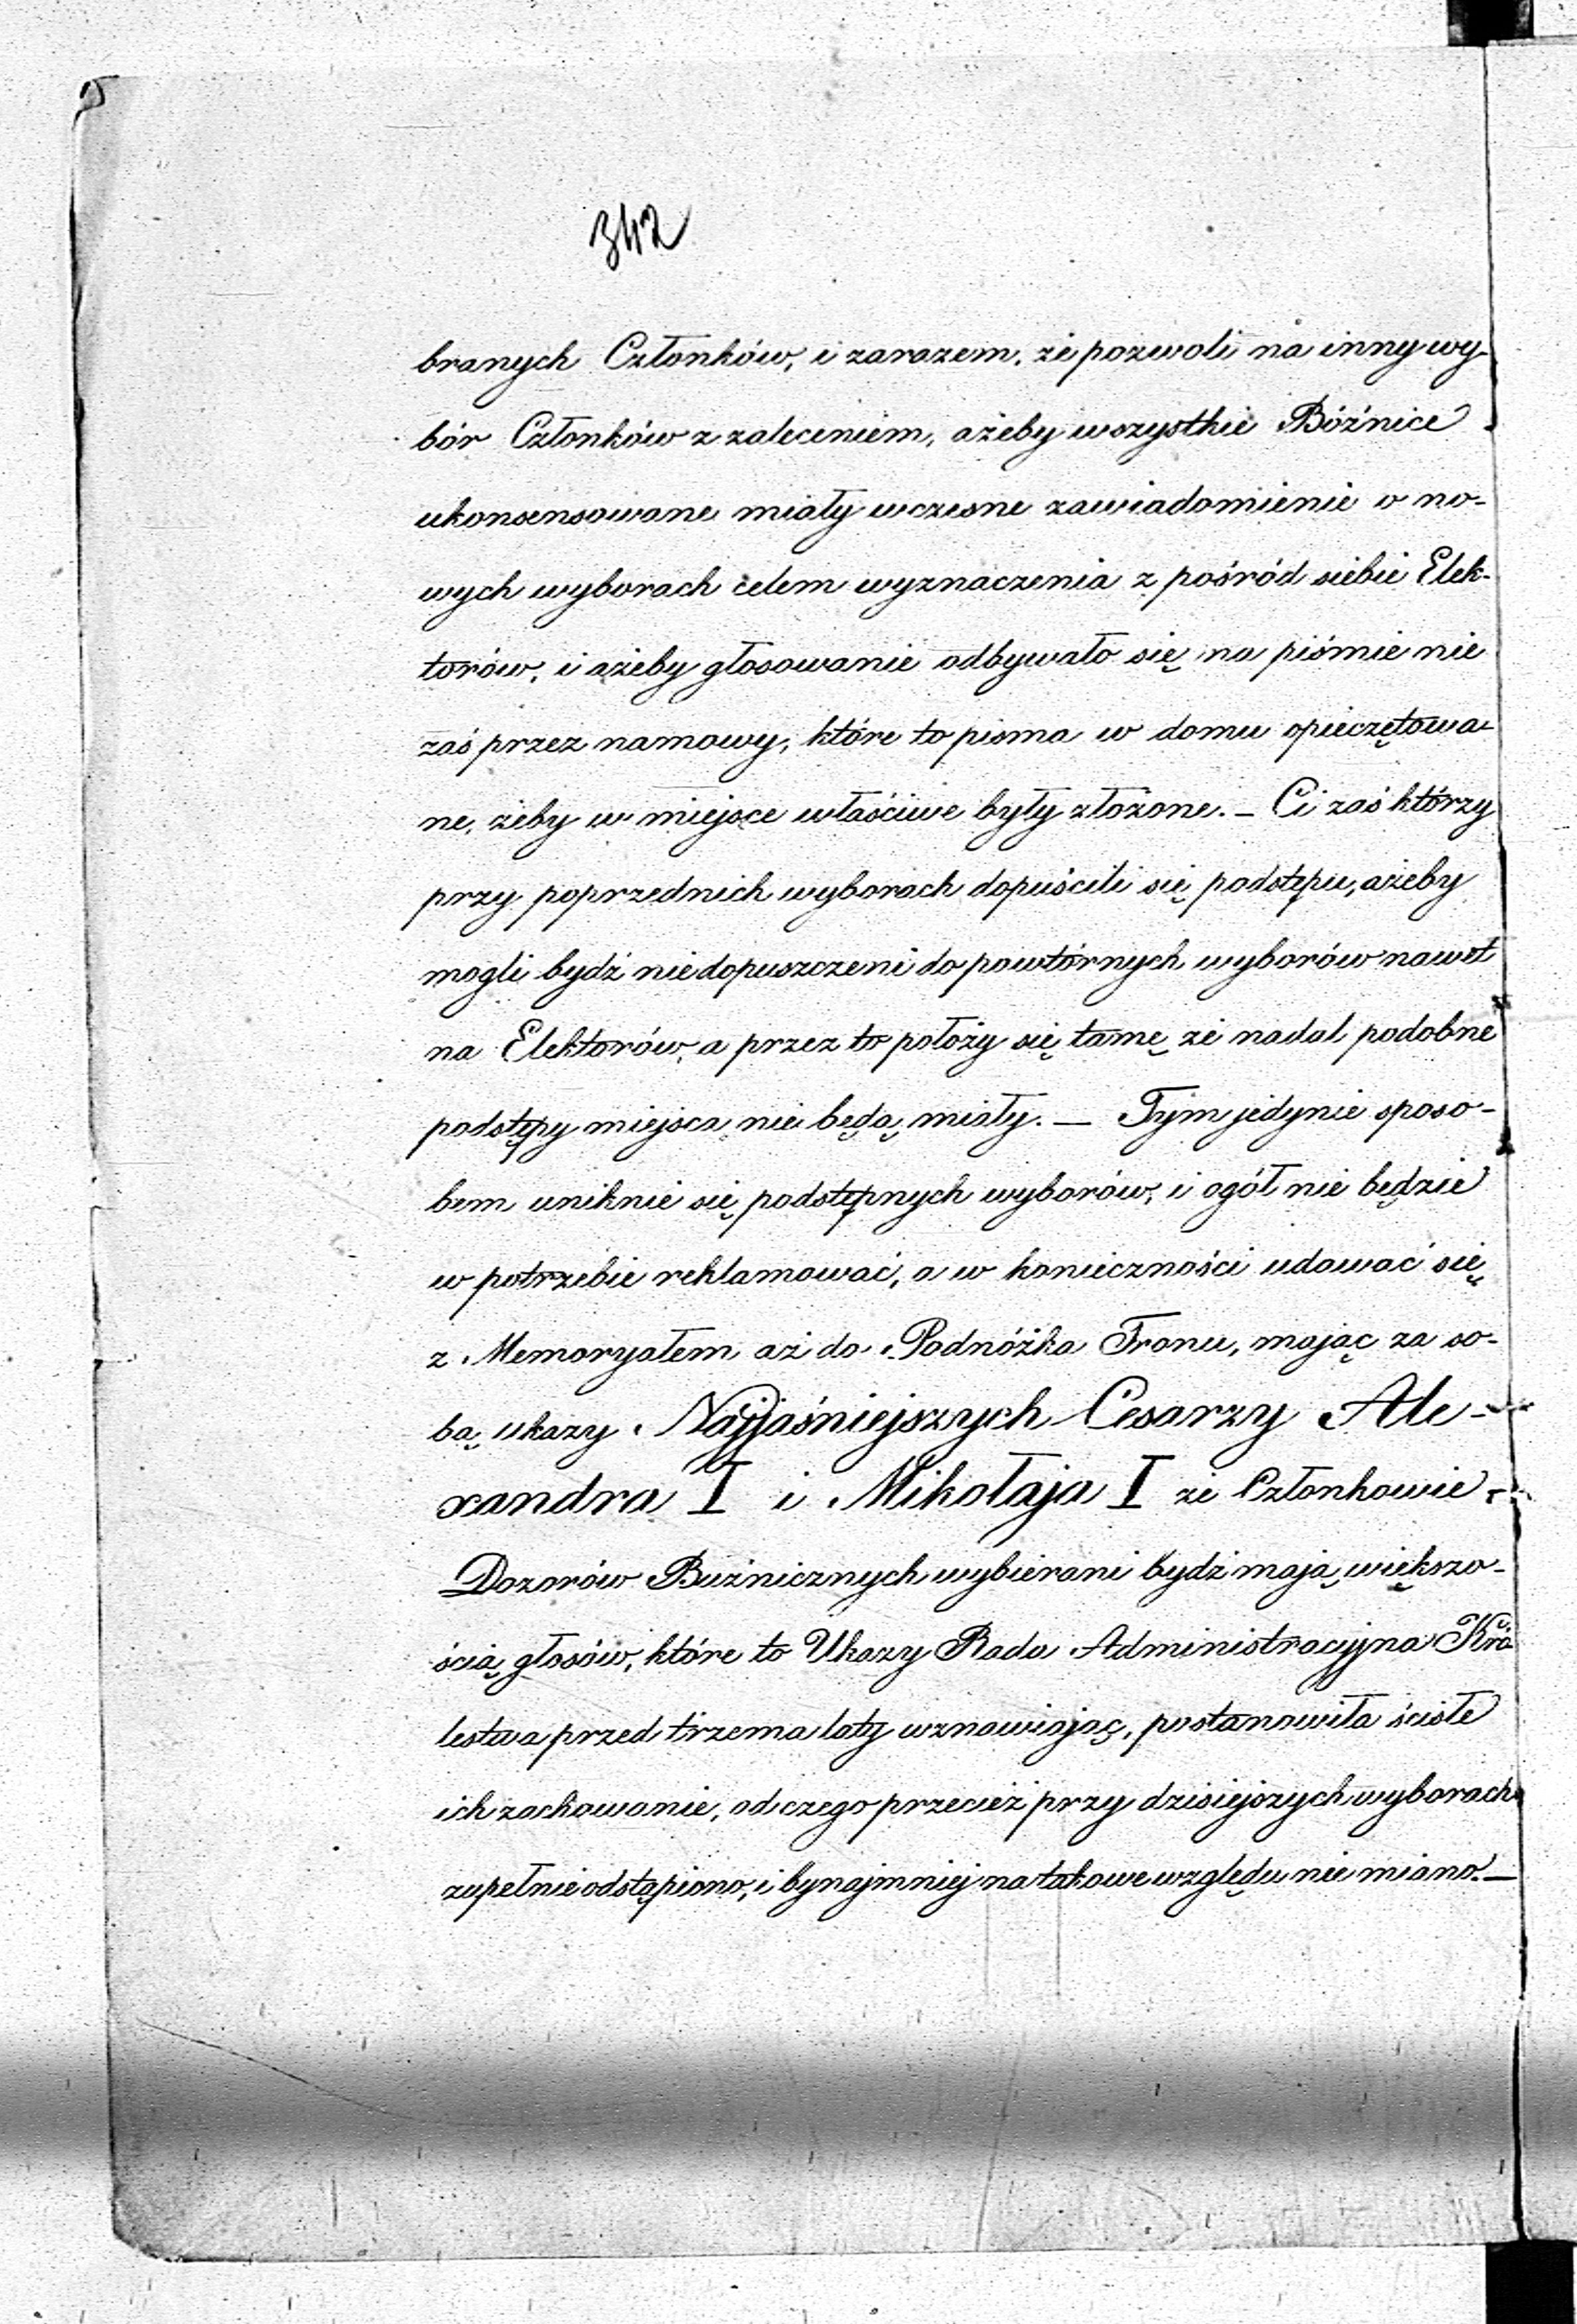 342
branych Członków, i zarazem, że pozwoli na inny wy-
bór Członków z zaleceniem, ażeby wszystkie Bóżnice
ukonsensowane miały wczesne zawiadomienie o no-
wych wyborach celem wyznaczenia z pośród siebie Elek-
torów, i ażeby głosowanie odbywało się na piśmie nie
zaś przez namowy, które to pisma w domu opieczętowa-
ne, żeby w miejsce właściwe były złożone. — Ci zaś którzy
przy poprzednich wyborach dopuścili się podstępu, ażeby
mogli bydź niedopuszczeni do powtórnych wyborów nawet
na Elektorów, a przez to położy się tamę że nadal podobne
podstępy miejsca nie będą miały. — Tym jedynie sposo-
bem uniknie się podstępnych wyborów, i ogół nie będzie
w potrzebie reklamować, a w konieczności udawać się
z Memoryałem aż do Podnóżka Tronu, mając za so-
bą ukazy Najjaśniejszych Cesarzy Ale-
xandra I i Mikołaja I że Członkowie
Dozorów Buźnicznych wybierani bydź mają większo-
ścią głosów, które to Ukazy Rada Administracyjna Kró
lestwa przed trzema laty wznawiając, postanowiła ścisłe
ich zachowanie, od czego przecież przy dzisiejszych wyborach
zupełnie odstąpiono, i bynajmniej na takowe względu nie miano. —